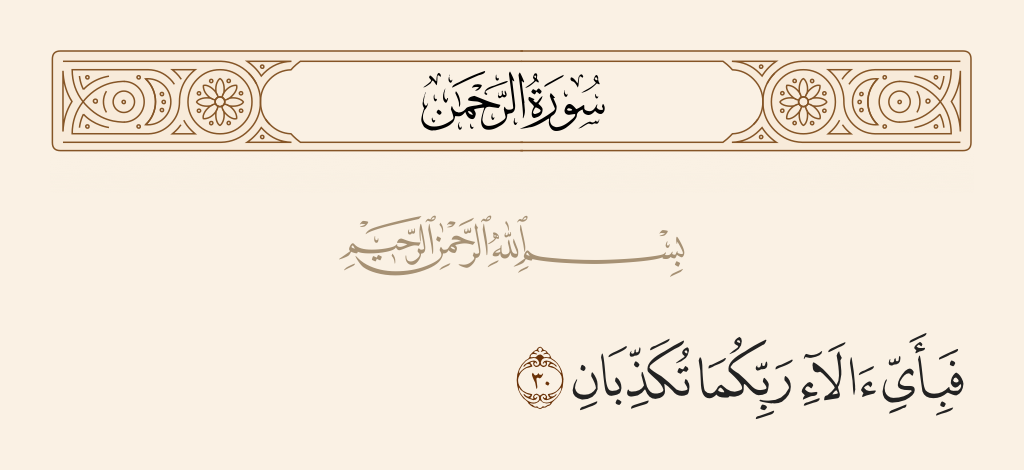 سُورَةُ الرَّحْمَٰن
بِسْمِ ٱللَّهِ ٱلرَّحْمَٰنِ ٱلرَّحِيمِ
فَبِأَيِّ ءَالَآءِ رَبِّكُمَا تُكَذِّبَانِ ٣٠